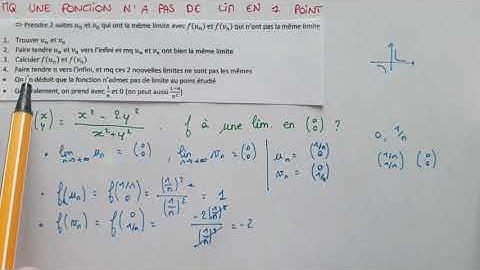 MQ UNE FONCTION N'A PAS DE LIM EN 1 POINT
⇒ Prendre 2 suites uₙ et vₙ qui ont la même limite avec f(uₙ) et f(vₙ) qui n'ont pas la même limite
1. Trouver uₙ et vₙ
2. Faire tendre uₙ et vₙ vers l'infini et mq uₙ et vₙ ont bien la même limite
3. Calculer f(uₙ) et f(vₙ)
4. Faire tendre n vers l'infini, et mq ces 2 nouvelles limites ne sont pas les mêmes
• On en déduit que la fonction n'admet pas de limite au point étudié
, on prend avec 1/n et 0 (on peut aussi
(x y) = (x² - 2y²)/(x² + y²) f a une lim. en (0 0) ?
0, 1/n
• lim n→+∞ uₙ = (0 0), lim n→+∞ vₙ = (0 0) | uₙ = (1/n 0) vₙ = (0 1/n)
(1/n 1/n) (0 0)
• f(uₙ) = f(1/n 0) = (1/n)²/(1/n)² = 1
• f(vₙ) = f(0 1/n) = -2(1/n)²/(1/n)² = -2